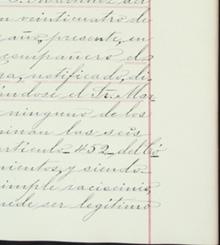 n veinticuatro de
año, presente, en
compañero
notificado, di-
ándose el Sr. Mar
ninguno de los
inan las seis
artículo 452 del Ci
mientos, y siendo
simple raciocinio,
uede ser legítimo